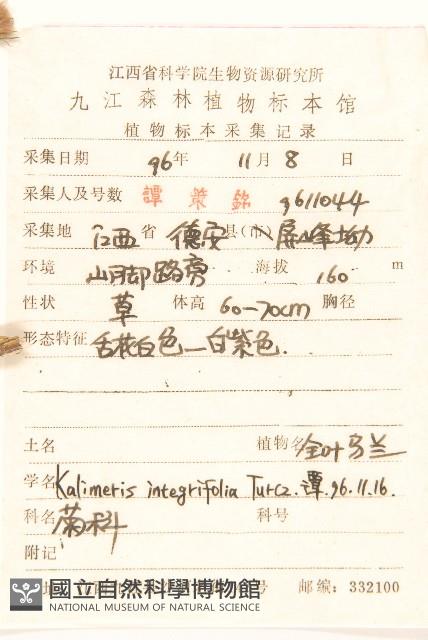 江西省科学院生物资源研究所
九江森林植物标本馆
植物标本采集记录
采集日期 96年 11月 8 日
采集人及号数 譚策銘 9611044
采集地 江西 省 德安 县(市) 屏峰坳
环境 山脚路旁 海拔 160 m
性状 草 体高 60—70cm 胸径
形态特征 舌花白色—白紫色.
土名 植物名 全叶马兰
学名 Kalimeris integrifolia Turcz. 譚.96.11.16.
科名 菊科 科号
附记
号 邮编: 332100
國立自然科學博物館
NATIONAL MUSEUM OF NATURAL SCIENCE